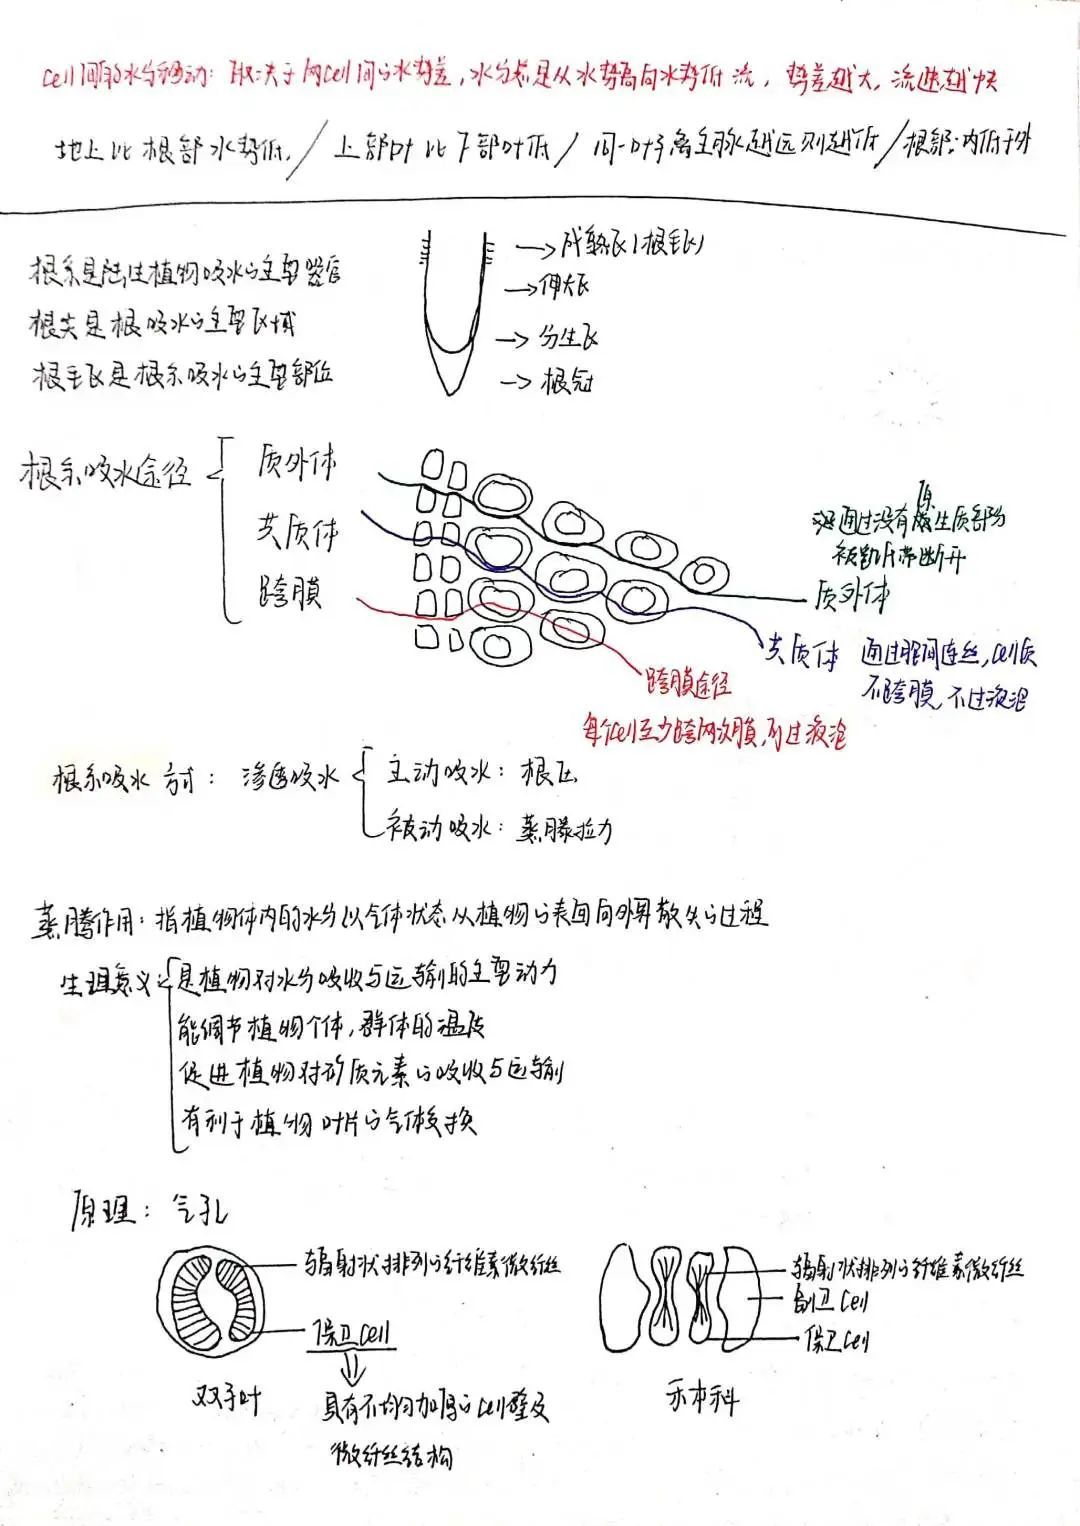 cell间的水分移动：取决于两cell间的水势差，水分总是从水势高向水势低流，势差越大，流速越快
地上比根部水势低／上部叶比下部叶低／同一叶子离主脉越远则越低／根部：内低于外
根系是陆生植物吸水的主要器官
根尖是根吸水的主要区域
根毛区是根系吸水的主要部位
→成熟区(根毛区)
→伸长区
→分生区
→根冠
根系吸水途径
质外体
共质体
跨膜
通过没有原生质部分
被凯氏带断开
质外体
共质体 通过胞间连丝，cell质
不跨膜，不过液泡
跨膜途径
每个cell至少跨两次膜，可过液泡
根系吸水方式：渗透吸水
主动吸水：根压
被动吸水：蒸腾拉力
蒸腾作用：指植物体内的水分以气体状态从植物的表面向外界散失的过程
生理意义：是植物对水分吸收与运输的主要动力
能调节植物个体，群体的温度
促进植物对矿质元素的吸收与运输
有利于植物叶片的气体交换
原理：气孔
辐射状排列的纤维素微纤丝
保卫cell
双子叶
具有不均匀加厚的cell壁及
微纤丝结构
辐射状排列的纤维素微纤丝
副卫cell
保卫cell
禾本科